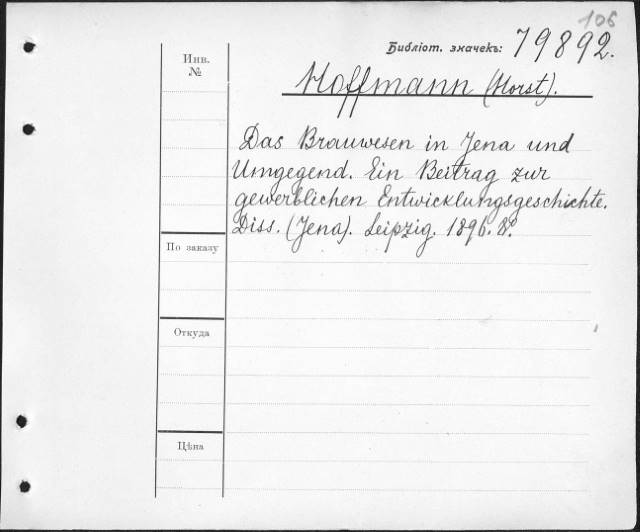 106
Библіот. значекъ: 79892.
Инв.
№
Hoffmann (Horst).
Das Brauwesen in Jena und
Umgegend. Ein Beitrag zur
gewerblichen Entwicklungsgeschichte.
Diss. (Jena). Leipzig. 1896. 8º.
По заказу
Откуда
Цѣна